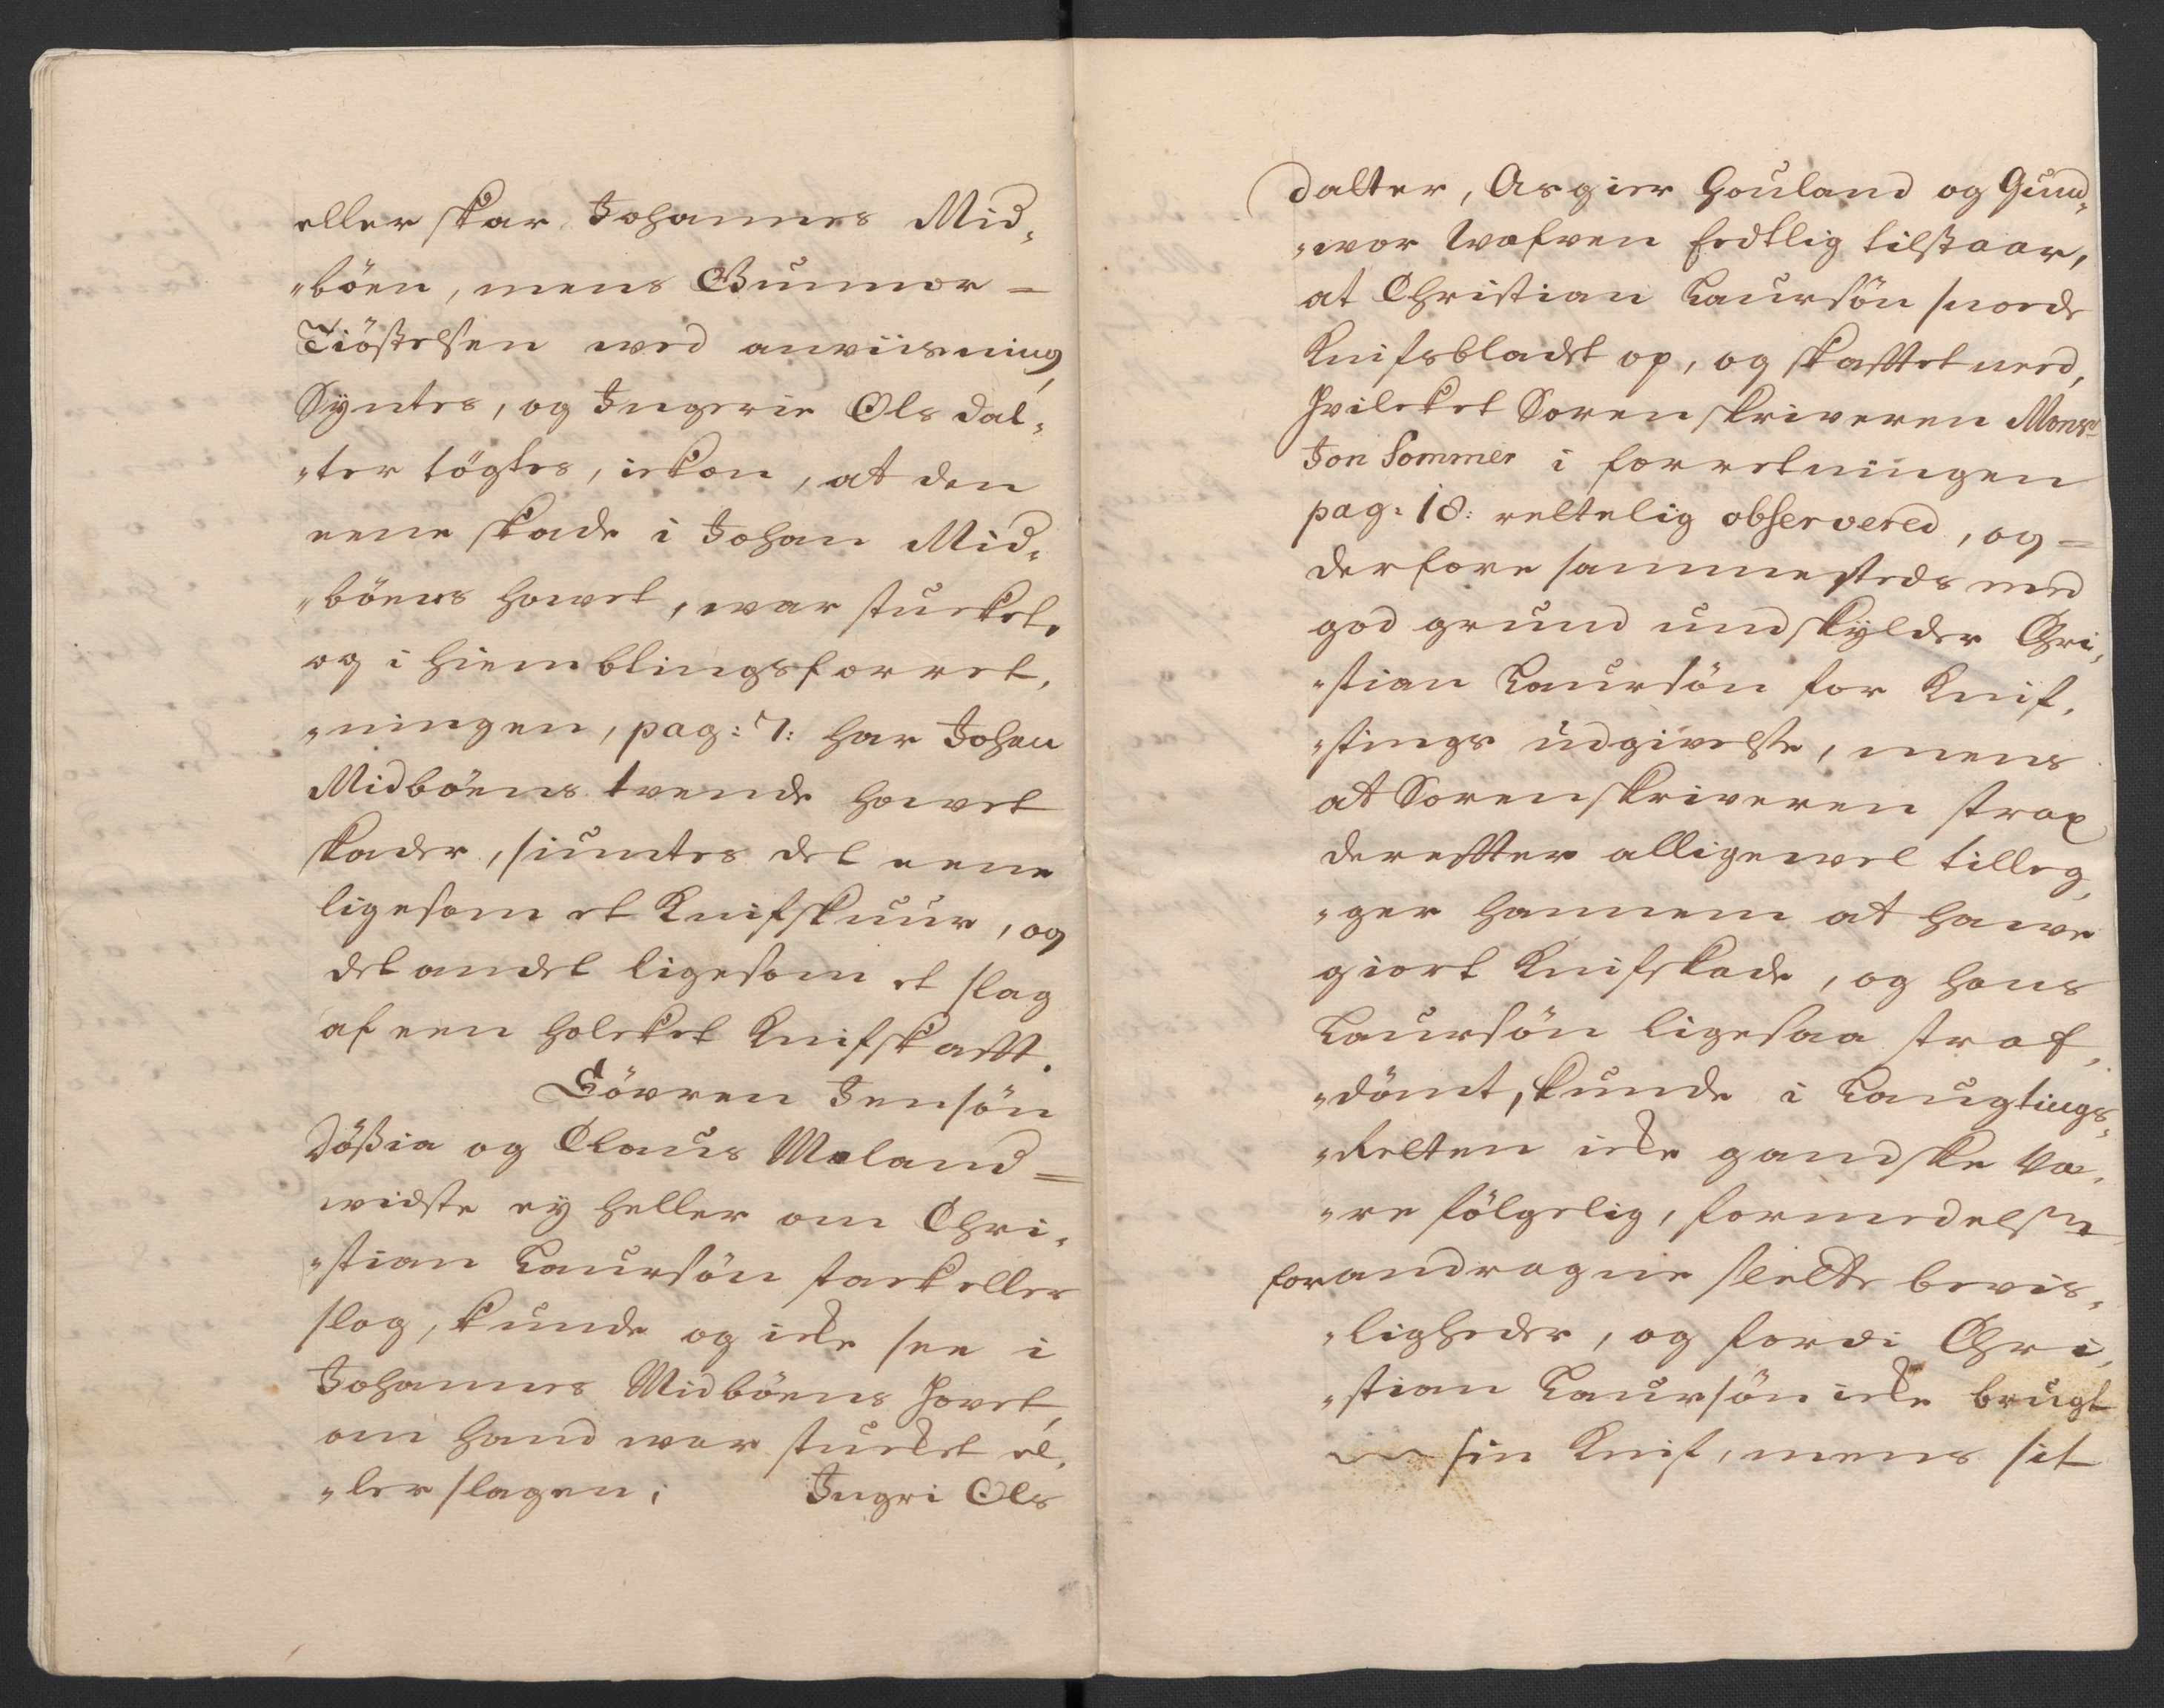 eller skar Johannes Mid,
"böen, mens Gunnor =
Tiöstelsen wed anviisning
Syntes, og Ingerie Ols dal,
"ter tögtes, ickon, at den
eene skade i Johan Mid,
"böens howet, war stucket,
og i hiemblingsforret,
"ningen, pag: 7: har Johan
Midböens tvende howet
skader, siuntes det eene
ligesom et Knifskuur, og
det andet ligesom et slag
af een holcket Knifskafft.
Sövren Jensön
Döβia og Claus Meland =
widste ey heller om Chri,
"stian Laursön stack eller
slog, kunde og icke see i
Johannes Midböens Hovet,
om hand war stucket el,
"ler slagen; Ingri Ols
dalter, Asgier Houland og Gun,
"wor Wafven Eedtlig tilstaar,
at Christian Laursön snoede
Knifsbladet op, og skafftet need,
Hvilcket Sorenskriveren Monsr
Jon Sommer i forretningen
pag: 18: rettelig observered, og =
derfore sammesteds med
god grund undskylder Chri,
"stian Laursön for Knif,
"stings udgivelse, mens
at Sorenskriveren strax
derefter alligewel tilleg,
"ger hannem at hawe
giort Knifskade, og hans
Laursön ligesaa straf,
"dömt, kunde i Laugtings,
"Retten icke gandske væ,
"re fölgelig, formedelst
forandragne slette bevis,
"ligheder, og fordi Chri,
"stian Laursön icke brugt
sin Knif, mens sit